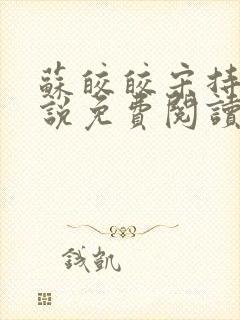 蘇皎皎宋持
說免費閱讀
錢凱